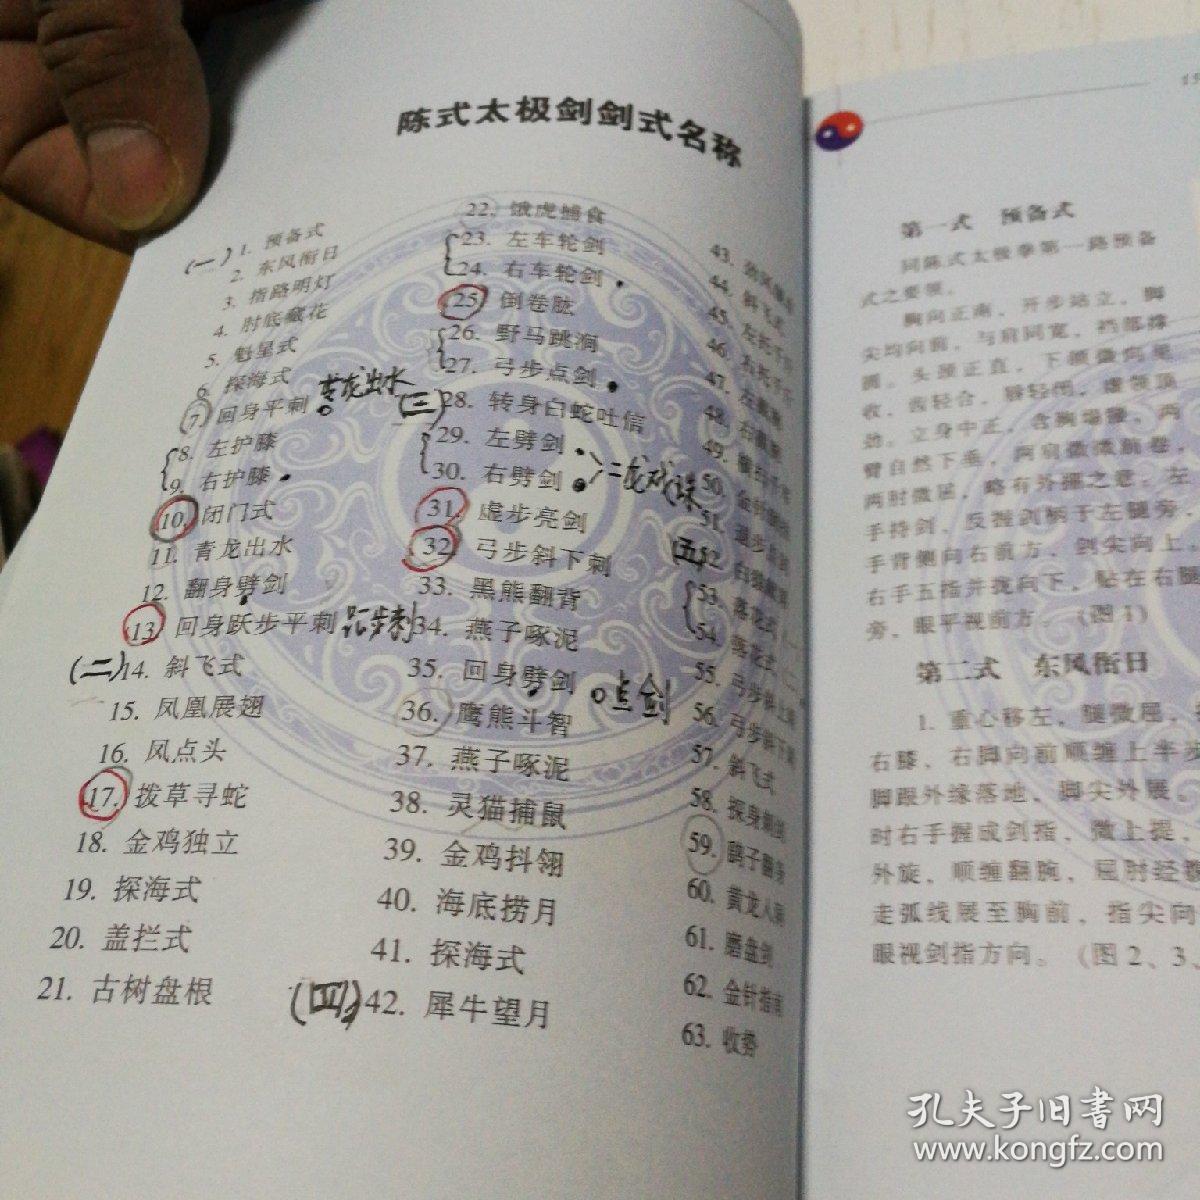 陈式太极剑剑式名称
(一) 1. 预备式
2. 东风衔日
3. 指路明灯
4. 肘底藏花
5. 魁星式
6. 探海式
7. 回身平刺 青龙出水
8. 左护膝
9. 右护膝
10. 闭门式
11. 青龙出水
12. 翻身劈剑
13. 回身跃步平刺
(二) 14. 斜飞式
15. 凤凰展翅
16. 凤点头
17. 拨草寻蛇
18. 金鸡独立
19. 探海式
20. 盖拦式
21. 古树盘根
22. 饿虎捕食
23. 左车轮剑
24. 右车轮剑
25. 倒卷肱
26. 野马跳涧
27. 弓步点剑
(三) 28. 转身白蛇吐信
29. 左劈剑
30. 右劈剑 二龙戏珠
31. 虚步亮剑
32. 弓步斜下刺
33. 黑熊翻背
34. 燕子啄泥
35. 回身劈剑 点剑
36. 鹰熊斗智
37. 燕子啄泥
38. 灵猫捕鼠
39. 金鸡抖翎
40. 海底捞月
41. 探海式
(四) 42. 犀牛望月
43.
44. 斜飞式
45. 左托千
46. 右托千
47. 左
48. 右
49.
50. 金针
51. 退步
(五) 52. 白猿
53. 落花式
54. 落花式
55. 弓步斜上
56. 弓步斜下
57. 斜飞式
58. 探身
59. 鹞子翻身
60. 黄龙
61. 磨盘剑
62. 金针指南
63. 收势
第一式 预备式
同陈式太极拳第一路预备
式之要领。
胸向正南，开步站立，脚
尖均向前，与肩同宽，裆部撑
圆，头颈正直，下颌微向里
收，齿轻合，唇轻闭，虚领顶
劲，立身中正，含胸塌腰，两
臂自然下垂，两肩微微前卷，
两肘微屈，略有外掤之意。左
手持剑，反握剑柄于左腿旁，
手背侧向右前方，剑尖向上，
右手五指并拢向下，贴在右腿
旁，眼平视前方。（图 1）
第二式 东风衔日
1. 重心移左，腿微屈，
右膝，右脚向前顺缠上半步
脚跟外缘落地，脚尖外展。
时右手握成剑指，微上提，
外旋，顺缠翻腕，屈肘经
走弧线展至胸前，指尖向
眼视剑指方向。（图 2、3、
孔夫子旧书网
www.kongfz.com